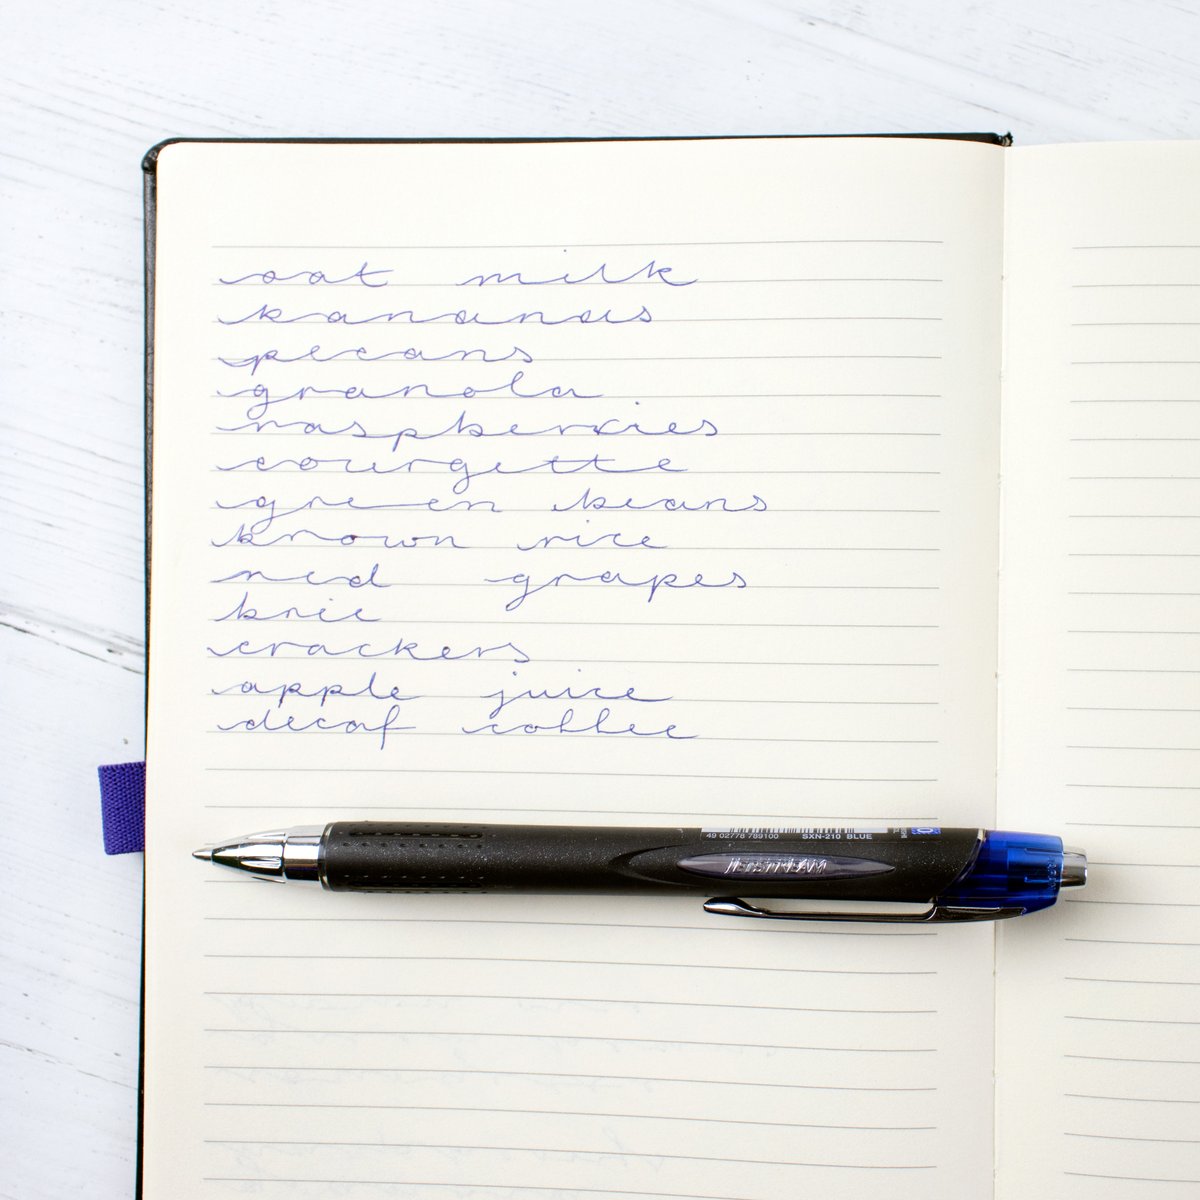 oat milk
bananas
pecans
granola
raspberries
courgette
green beans
brown rice
red grapes
brie
crackers
apple juice
decaf coffee
49 02778 789100 SXN-210 BLUE
JETSTREAM